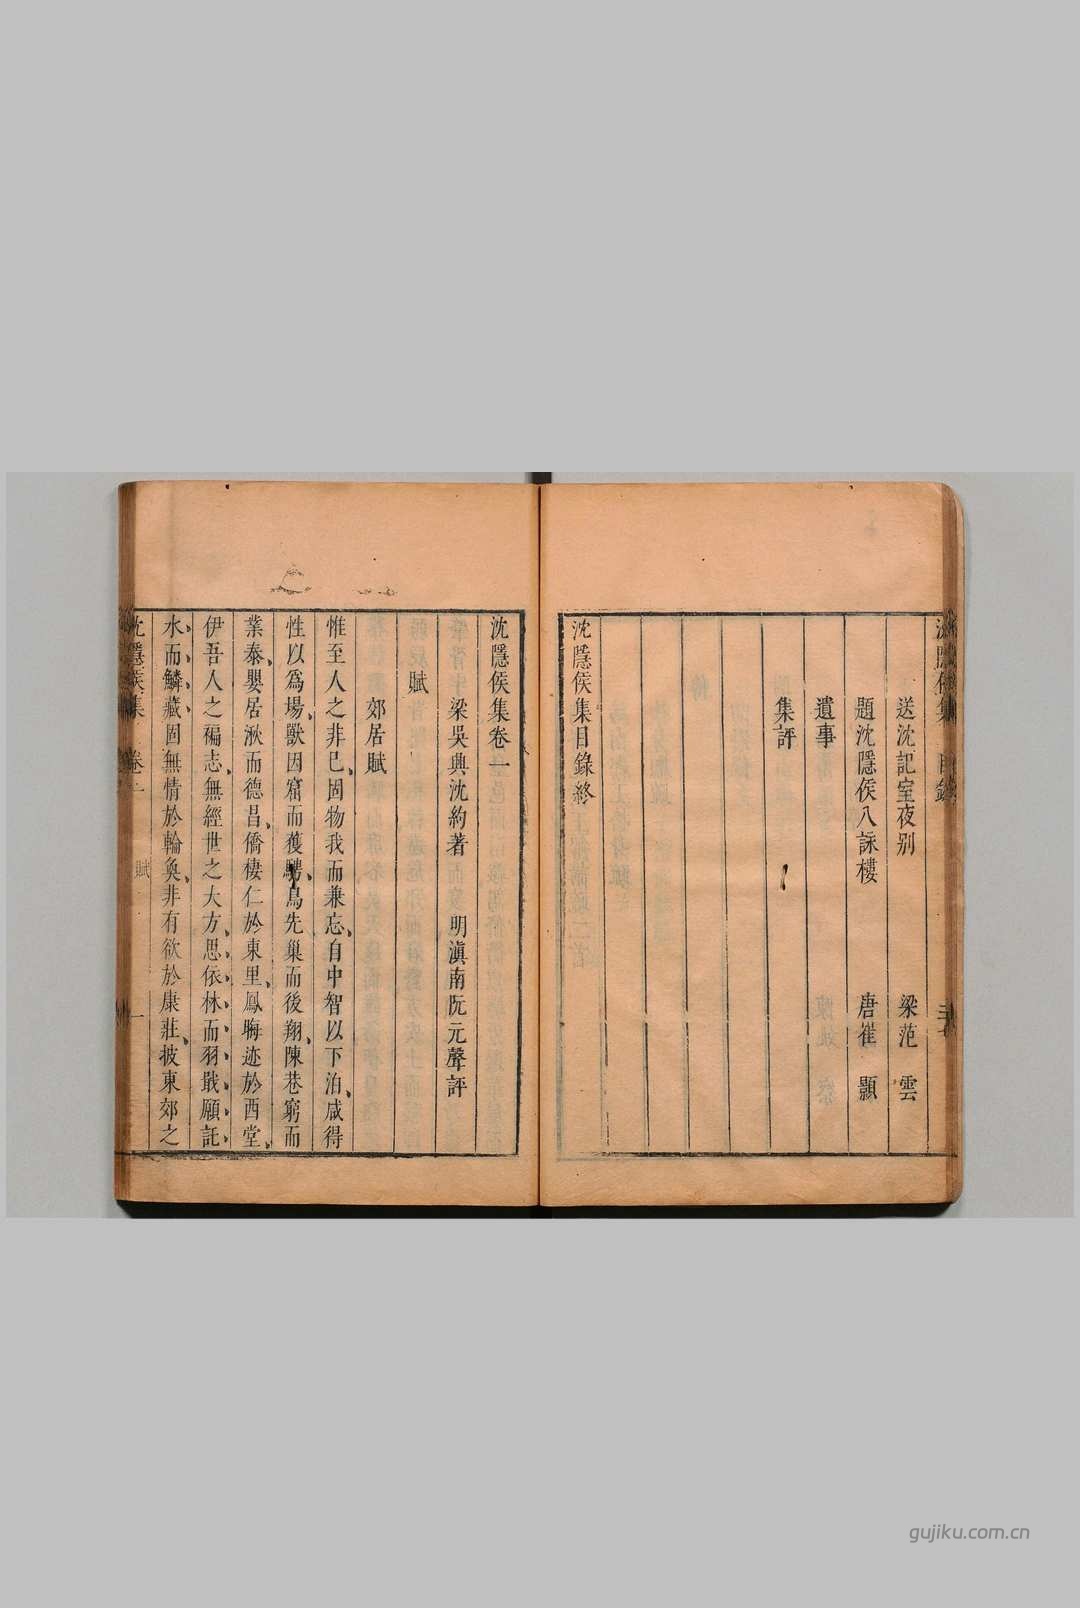 送沈記室夜别 梁范雲
題沈隱侯八詠樓 唐崔顥
遺事
集評
沈隱侯集目錄終
沈隱侯集卷一
梁吳興沈約著 明滇南阮元聲評
賦
郊居賦
惟至人之非已固物我而兼忘自中智以下洎咸得
性以爲場獸因窟而獲騁鳥先巢而後翔陳巷窮而
業泰嬰居湫而德昌僑棲仁於東里鳳晦迹於西堂
伊吾人之褊志無經世之大方思依林而羽戢願託
水而鱗藏固無情於輪奐非有欲於康莊披東郊之
沈隱侯集 卷一 賦 一
gujiku.com.cn